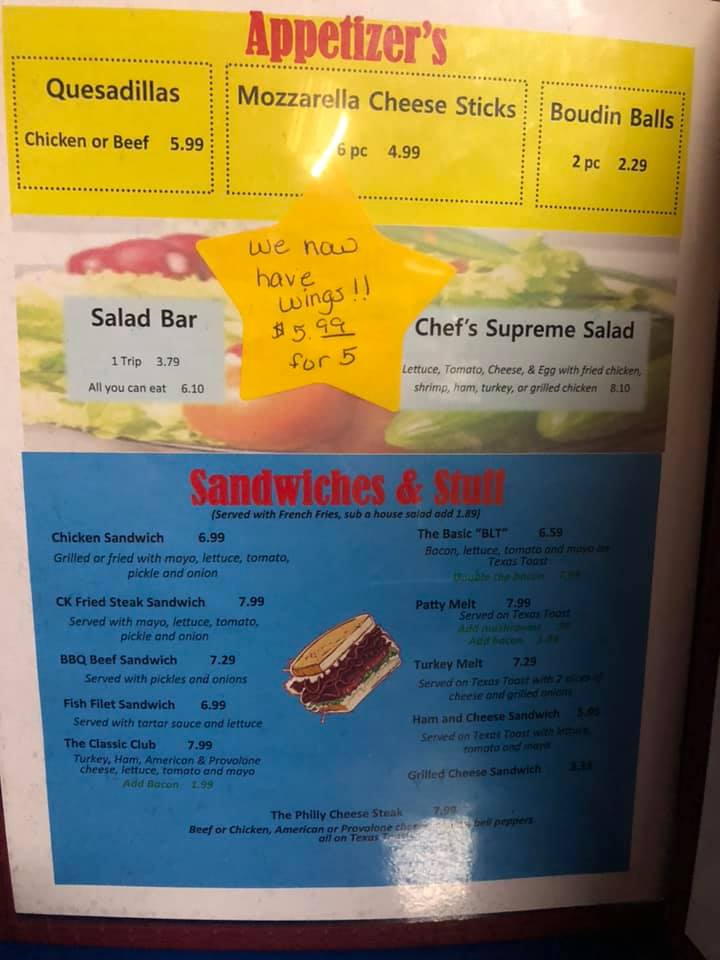 Appetizer's
Quesadillas
Chicken or Beef 5.99
Mozzarella Cheese Sticks
6 pc 4.99
Boudin Balls
2 pc 2.29
we now
have
wings!!
$5.99
for 5
Salad Bar
1 Trip 3.79
All you can eat 6.10
Chef's Supreme Salad
Lettuce, Tomato, Cheese, & Egg with fried chicken,
shrimp, ham, turkey, or grilled chicken 8.10
Sandwiches & Stuff
(Served with French Fries, sub a house salad add 1.89)
Chicken Sandwich 6.99
Grilled or fried with mayo, lettuce, tomato,
pickle and onion
CK Fried Steak Sandwich 7.99
Served with mayo, lettuce, tomato,
pickle and onion
BBQ Beef Sandwich 7.29
Served with pickles and onions
Fish Filet Sandwich 6.99
Served with tartar sauce and lettuce
The Classic Club 7.99
Turkey, Ham, American & Provolone
cheese, lettuce, tomato and mayo
Add Bacon 1.99
The Basic "BLT" 6.59
Bacon, lettuce, tomato and mayo on
Texas Toast
Double the bacon
Patty Melt 7.99
Served on Texas Toast
Add mushrooms
Add bacon
Turkey Melt 7.29
Served on Texas Toast with 2 slices of
cheese and grilled onions
Ham and Cheese Sandwich
Served on Texas Toast with lettuce,
tomato and mayo
Grilled Cheese Sandwich
The Philly Cheese Steak 7.99
Beef or Chicken, American or Provolone bell peppers
all on Texas